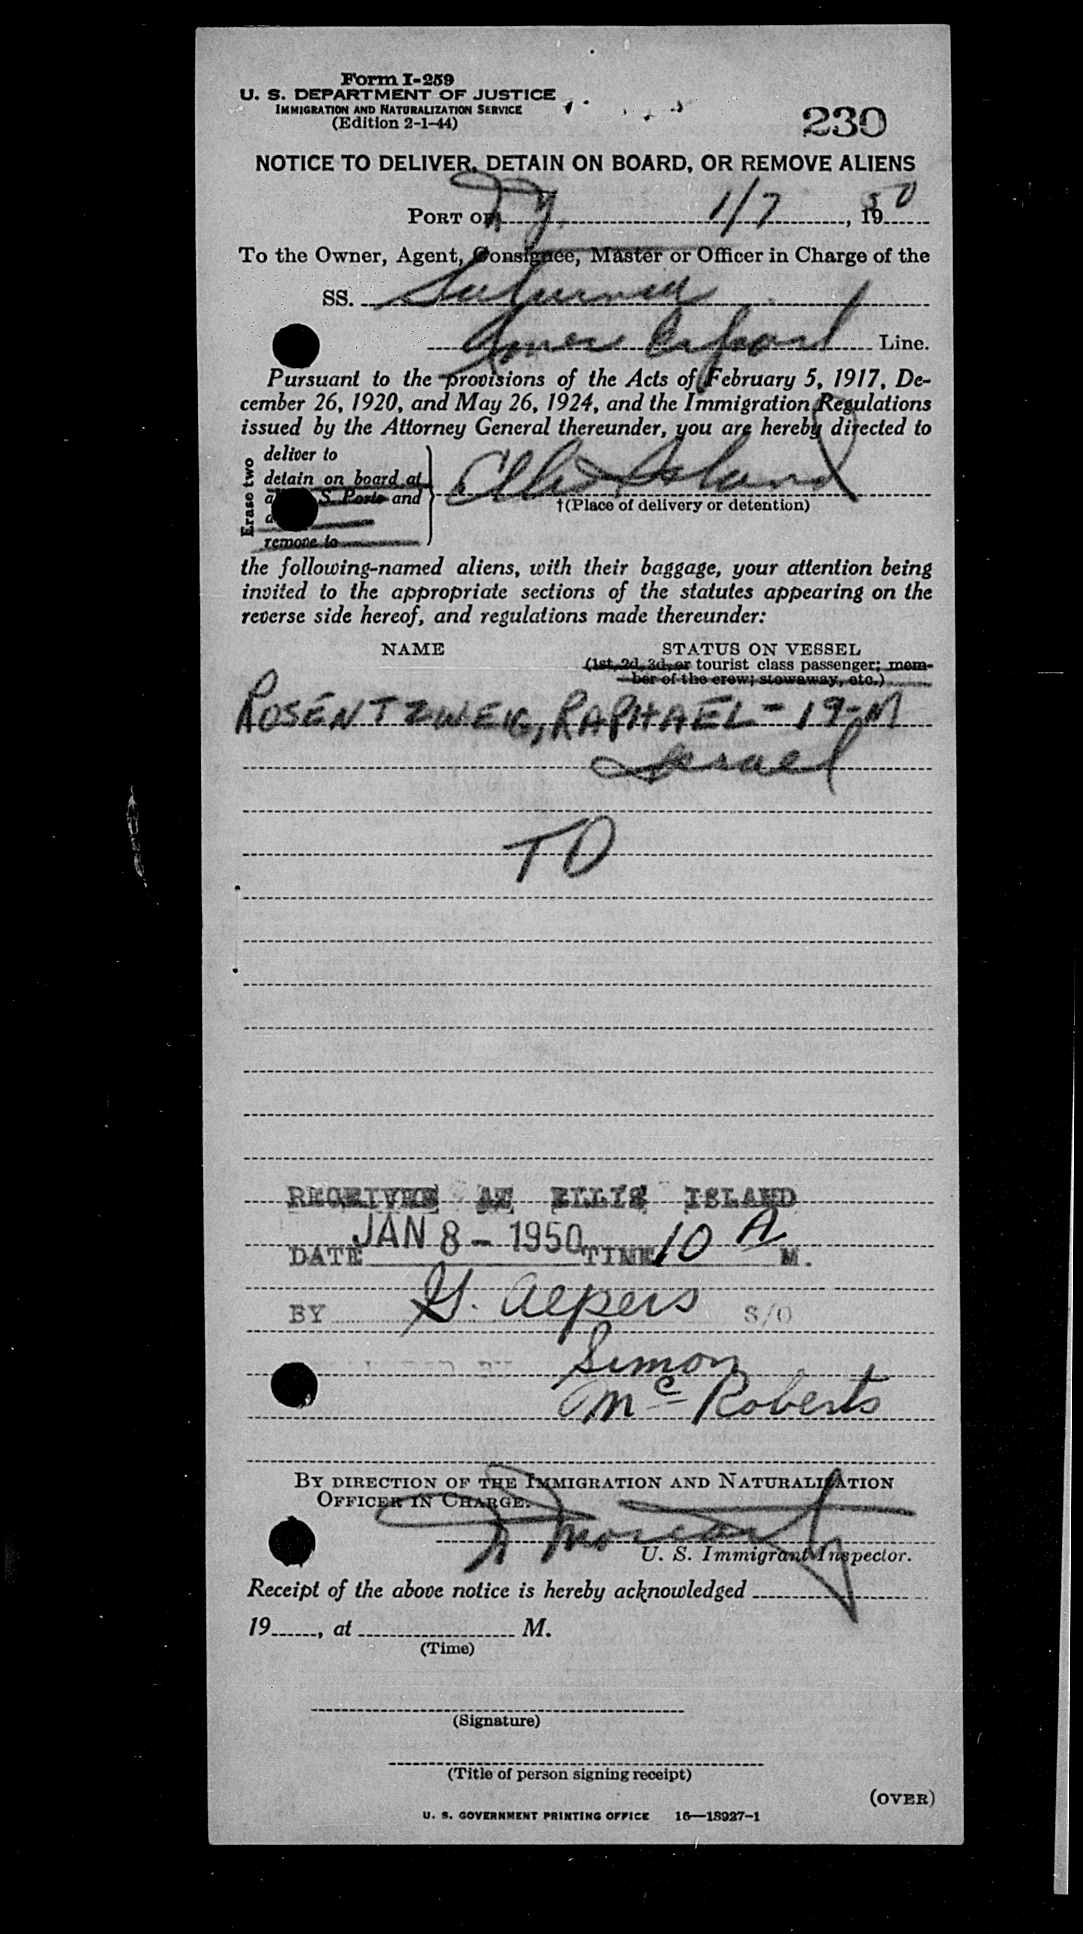 Form I-259
U. S. DEPARTMENT OF JUSTICE
IMMIGRATION AND NATURALIZATION SERVICE
(Edition 2-1-44)
230
NOTICE TO DELIVER, DETAIN ON BOARD, OR REMOVE ALIENS
PORT OF NY 1/7, 1950
To the Owner, Agent, Consignee, Master or Officer in Charge of the
SS. Saturnia
Amer Export Line.
Pursuant to the provisions of the Acts of February 5, 1917, De-
cember 26, 1920, and May 26, 1924, and the Immigration Regulations
issued by the Attorney General thereunder, you are hereby directed to
Erase two
deliver to
detain on board at
S. Ports and
remove to
Ellis Island
†(Place of delivery or detention)
the following-named aliens, with their baggage, your attention being
invited to the appropriate sections of the statutes appearing on the
reverse side hereof, and regulations made thereunder:
NAME STATUS ON VESSEL
(1st, 2d, 3d, or tourist class passenger; mem-
ber of the crew; stowaway, etc.)
ROSENTZWEIG, RAPHAEL - 19 - M
Israel
TD
RECEIVED AT ELLIS ISLAND
DATE JAN 8 - 1950 TIME 10 A M.
BY G. Alpers S/O
Simon
McRoberts
BY DIRECTION OF THE IMMIGRATION AND NATURALIZATION
OFFICER IN CHARGE.
U. S. Immigrant Inspector.
Receipt of the above notice is hereby acknowledged
19, at M.
(Time)
(Signature)
(Title of person signing receipt)
(OVER)
U. S. GOVERNMENT PRINTING OFFICE 16—13927-1